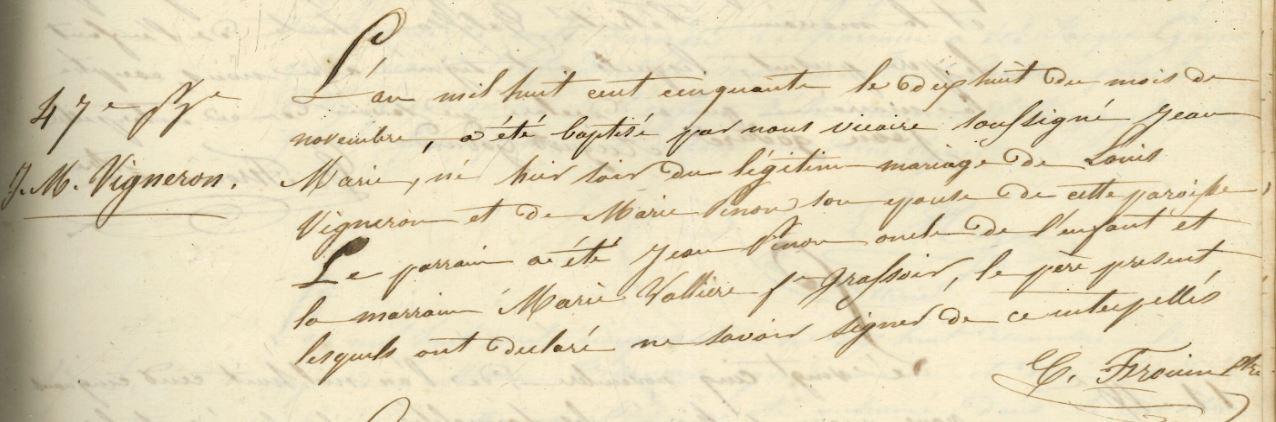 47e Bme
J. M. Vigneron.
L'an mil huit cent cinquante le dix huit du mois de
novembre, a été baptisé par nous vicaire soussigné Jean
Marie, né hier soir du légitime mariage de Louis
Vigneron et de Marie Pinon son épouse de cette paroisse,
Le parrain a été Jean Pinon oncle de l'enfant et
la marraine Marie Vallière fe Grassoir, le père présent
lesquels ont déclaré ne savoir signer de ce interpellés
C. Frouin Ptre